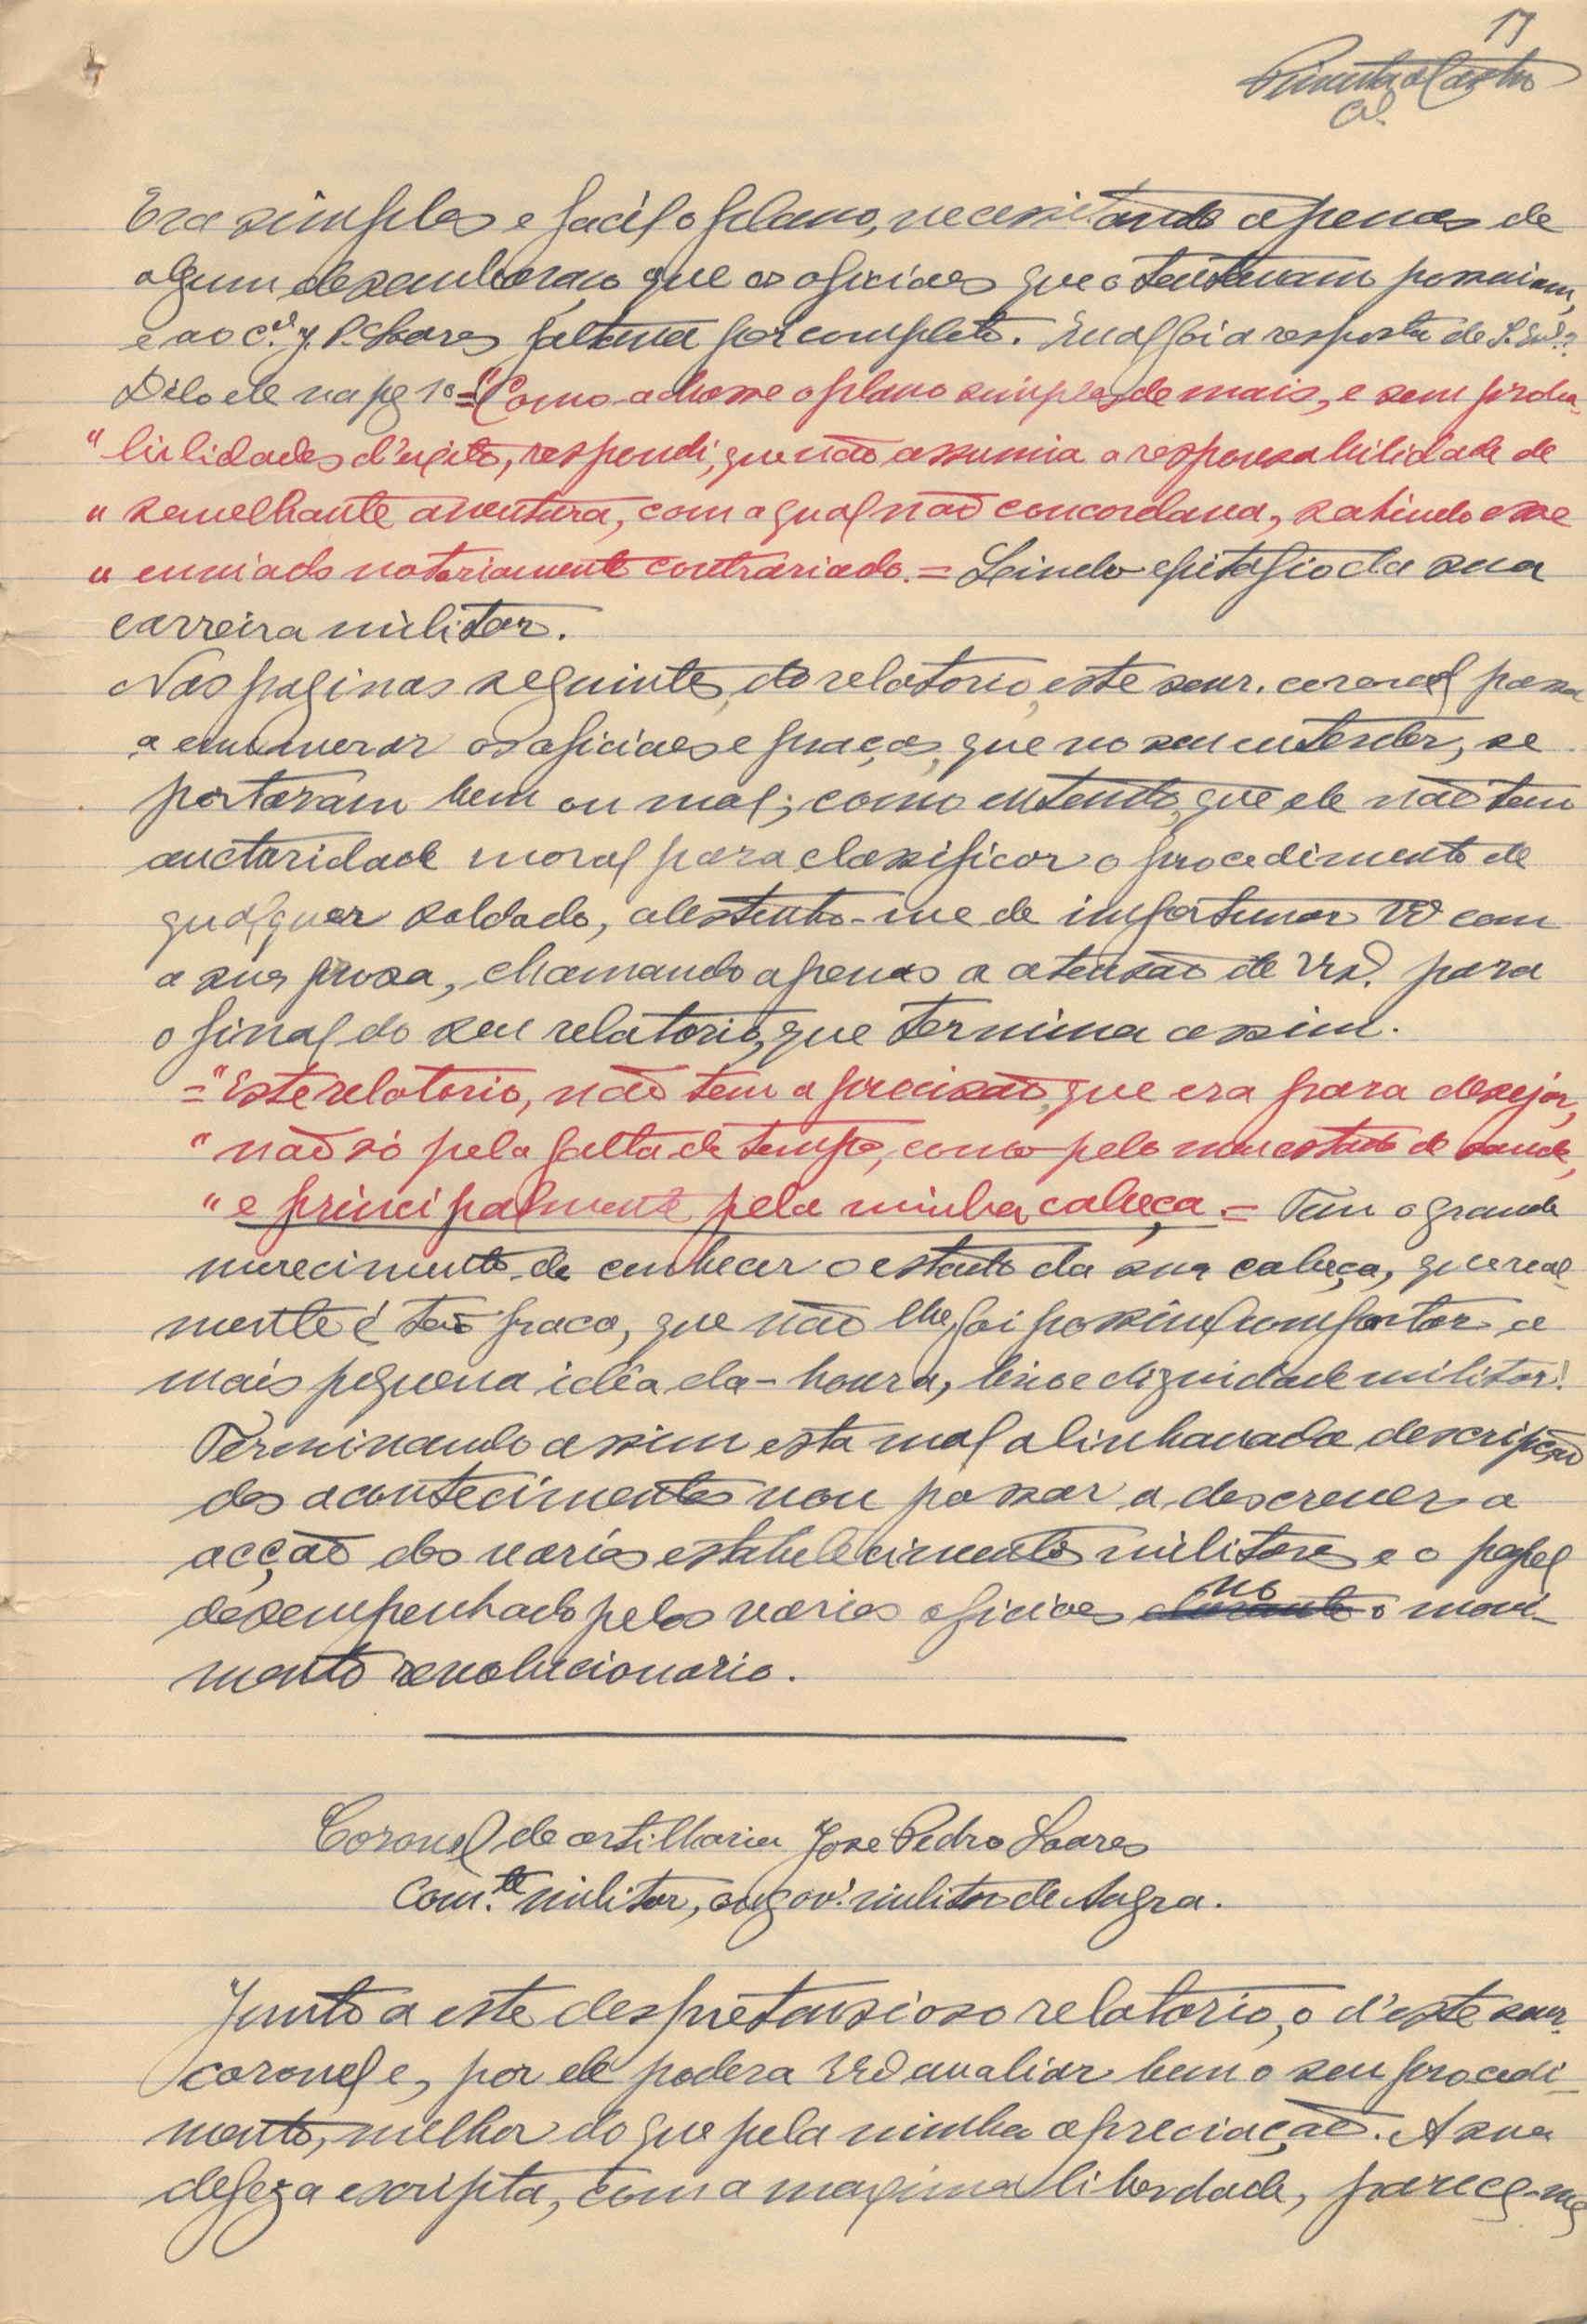 17
Pimenta de Castro
Cel.
Era simples e facil o plano, necessitando apenas de
algum desembaraço que os oficiaes que o tentavam possuiam,
e ao Cel. J. P. Soares faltava por completo. Qual foi a resposta de S. Exª?
Dilo ele na pg 10 = "Como achasse o plano simples de mais, e sem proba-
" bilidades d'exito, respondi, que não assumia a responsabilidade de
" semelhante aventura, com a qual não concordava, sahindo esse
" enviado notoriamente contrariado. = Lindo epitafio da sua
carreira militar.
Nas paginas seguintes, do relatorio, este senr. coronel passa
a enumerar os oficiaes e praças, que no seu entender, se
portaram bem ou mal; como entendo, que ele não tem
auctoridade moral para classificar o procedimento de
qualquer soldado, abstenho-me de importunar V. com
a sua prosa, chamando apenas a atensão de V. para
o final do seu relatorio, que termina assim.
= "Este relatorio, não tem a precisão, que era para desejar,
" não só pela falta de tempo, como pelo meu estado de saude,
" e principalmente pela minha cabeça. = Tem o grande
merecimento de conhecer o estado da sua cabeça, que real-
mente é tão fraca, que não lhe foi possivel comportar a
mais pequena idêa da - honra, brio e dignidade militar!
Terminando assim esta mal alinhavada descripção
dos acontecimentos vou passar a descrever a
acção dos varios estabelecimentos militares e o papel
desempenhado pelos varios oficiaes durante no o movi-
mento revolucionario.
Coronel de artilharia José Pedro Soares
Com.te militar, ou gov. militar de Angra.
Junto a este despretensioso relatorio, o d'este senr.
coronel e, por ele podera avaliar bem o seu procedi-
mento, melhor do que pela minha apreciação. A sua
defeza escripta, com a maxima liberdade, parece-me